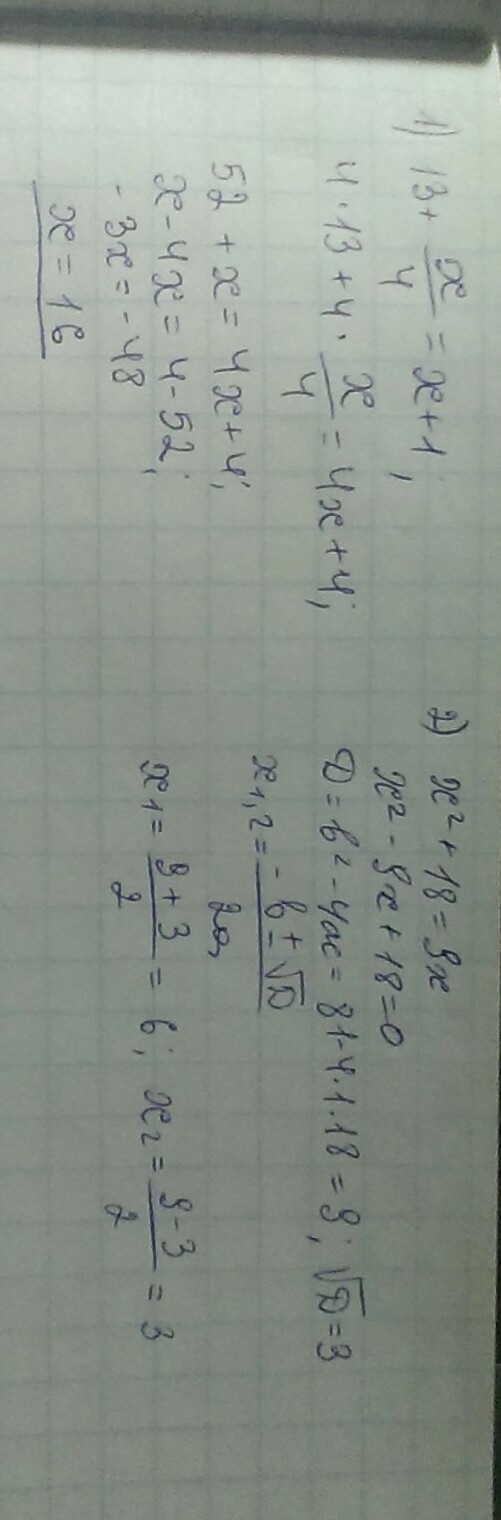 1) 13 + x/4 = x + 1;
4 · 13 + 4 · x/4 = 4x + 4;
52 + x = 4x + 4;
x - 4x = 4 - 52;
- 3x = - 48
x = 16
2) x² + 18 = 9x
x² - 9x + 18 = 0
D = b² - 4ac = 81 - 4 · 1 · 18 = 9; √D = 3
x₁,₂ = (- b ± √D)/2a
x₁ = (9 + 3)/2 = 6; x₂ = (9 - 3)/2 = 3